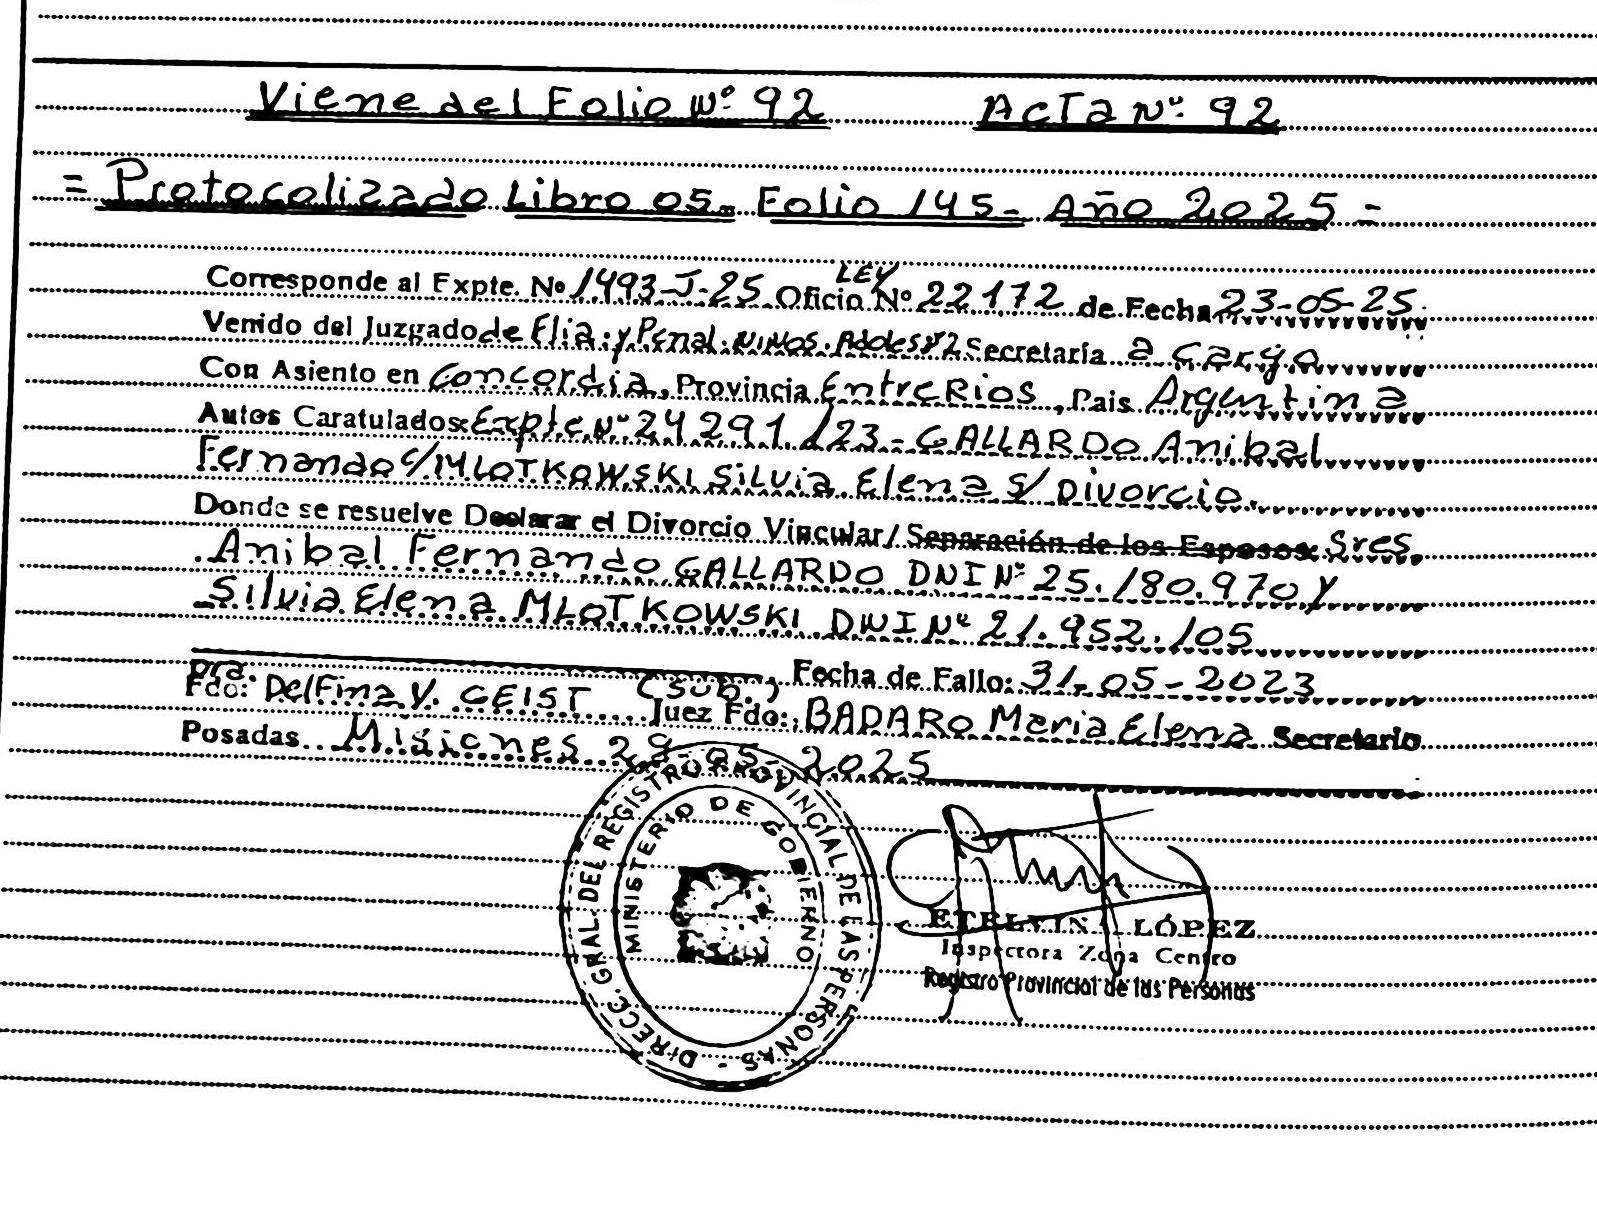 Viene del Folio Nº 92 Acta Nº 92
= Protocolizado Libro 05- Folio 145- Año 2025 =
Corresponde al Expte. Nº 1493-J-25 Oficio LEY Nº 22172 de Fecha 23-05-25.
Venido del Juzgado de Flia. y Penal. Niños. Adoles Nº2 Secretaría a cargo
Con Asiento en Concordia, Provincia Entre Rios, Pais Argentina
Autos Caratulados: Expte Nº 24291/23-GALLARDO Anibal
Fernando c/MLOTKOWSKI Silvia Elena S/ Divorcio.
Donde se resuelve Declarar el Divorcio Vincular/ Separación de los Esposos: Sres.
Anibal Fernando GALLARDO DNI Nº 25.180.970 y
Silvia Elena MLOTKOWSKI DNI Nº 21.952.105
Fecha de Fallo: 31-05-2023
Dra.
Fdo: Delfina Y. GEIST (sub.) Juez Fdo: BADARO Maria Elena Secretario
Posadas Misiones 29-05-2025
DIRECC. GRAL. DEL REGISTRO PROVINCIAL DE LAS PERSONAS -
MINISTERIO DE GOBIERNO
ETELVINA LÓPEZ
Inspectora Zona Centro
Registro Provincial de las Personas